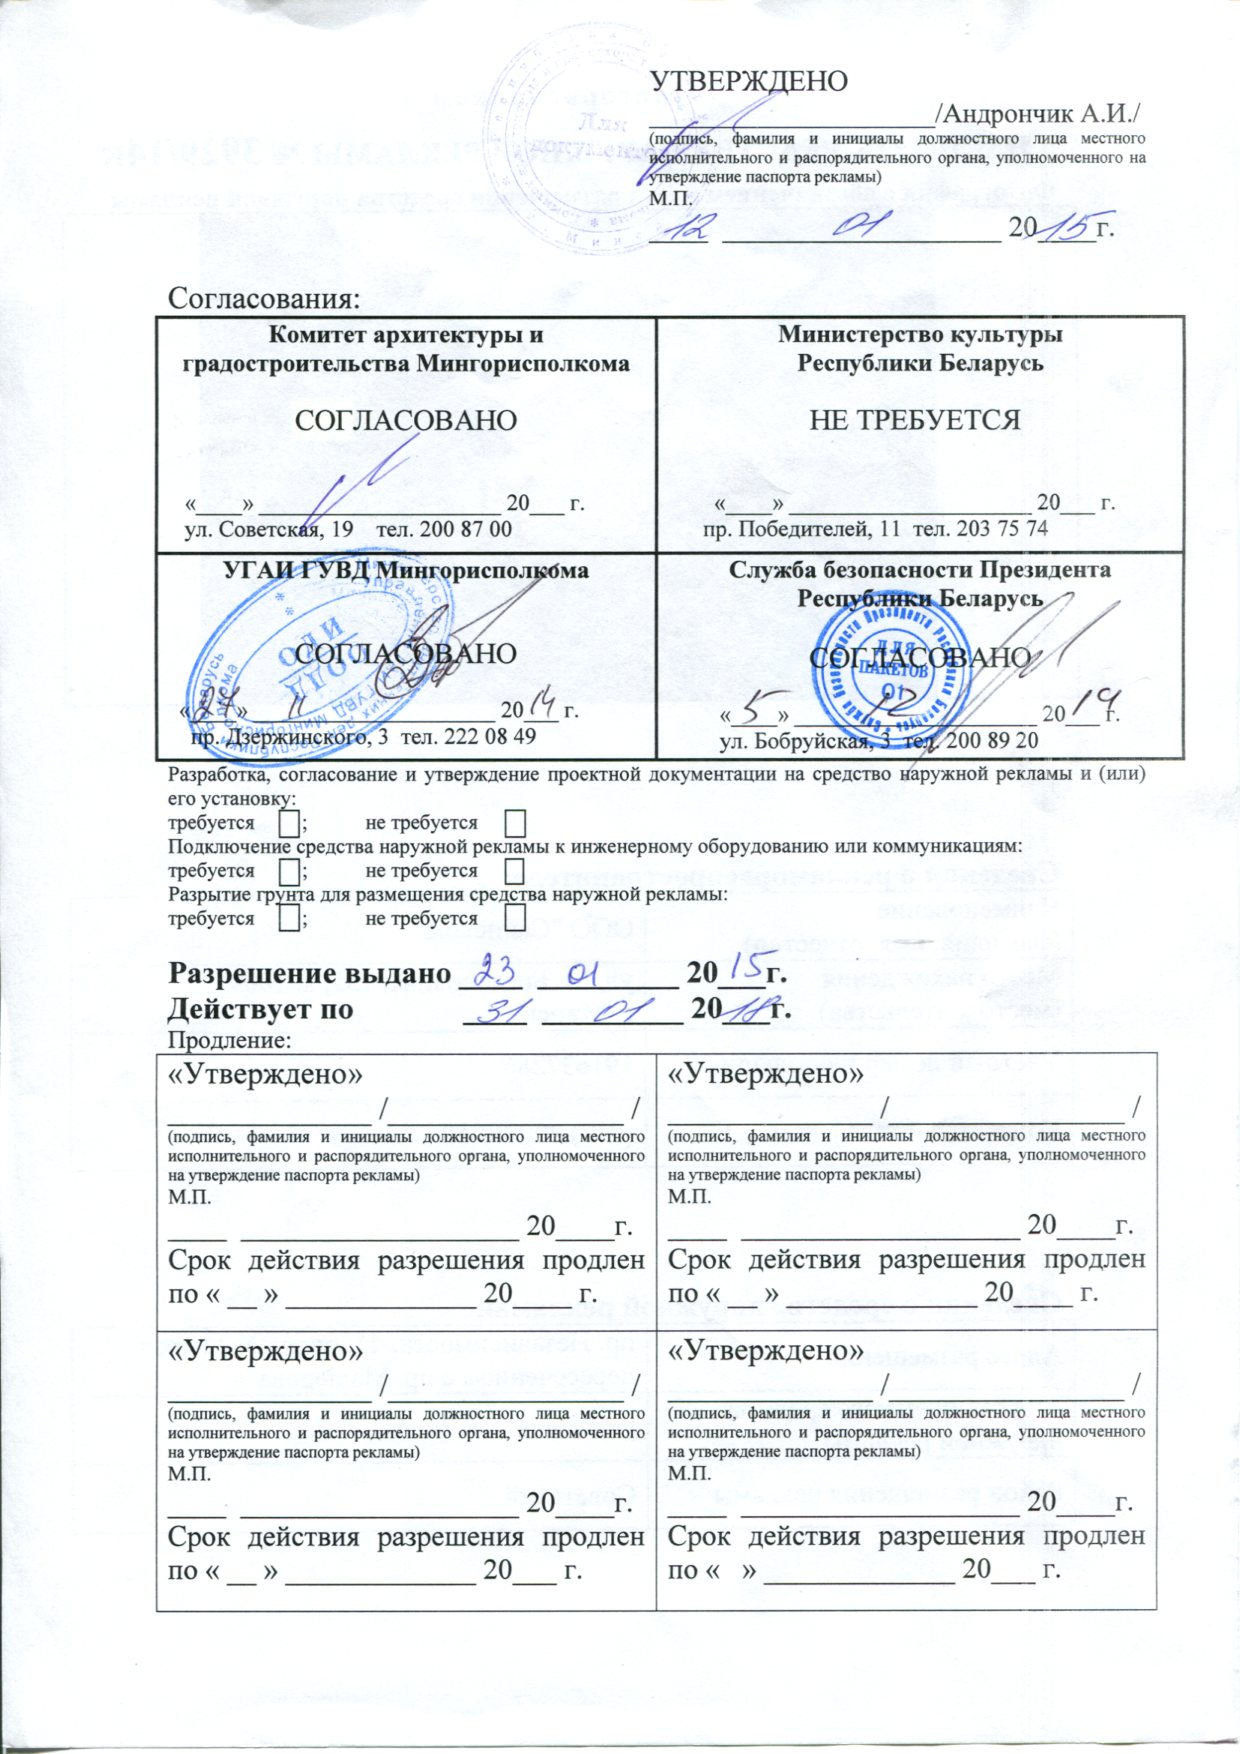 УТВЕРЖДЕНО
____________________/Андрончик А.И./
(подпись, фамилия и инициалы должностного лица местного
исполнительного и распорядительного органа, уполномоченного на
утверждение паспорта рекламы)
М.П.
12 01 2015г.
Для
документов
Согласования:
Комитет архитектуры и
градостроительства Мингорисполкома
СОГЛАСОВАНО
«____» ____________________ 20___ г.
ул. Советская, 19 тел. 200 87 00
Министерство культуры
Республики Беларусь
НЕ ТРЕБУЕТСЯ
«____» ____________________ 20___ г.
пр. Победителей, 11 тел. 203 75 74
УГАИ ГУВД Мингорисполкома
СОГЛАСОВАНО
«27» 11 2014 г.
пр. Дзержинского, 3 тел. 222 08 49
Служба безопасности Президента
Республики Беларусь
СОГЛАСОВАНО
«5» 12 2014 г.
ул. Бобруйская, 3 тел. 200 89 20
Служба безопасности Президента Республики Беларусь
ДЛЯ
ПАКЕТОВ
01
Разработка, согласование и утверждение проектной документации на средство наружной рекламы и (или)
его установку:
требуется ; не требуется
Подключение средства наружной рекламы к инженерному оборудованию или коммуникациям:
требуется ; не требуется
Разрытие грунта для размещения средства наружной рекламы:
требуется ; не требуется
Разрешение выдано 23 01 2015г.
Действует по 31 01 2018г.
Продление:
«Утверждено»
______________ /________________ /
(подпись, фамилия и инициалы должностного лица местного
исполнительного и распорядительного органа, уполномоченного
на утверждение паспорта рекламы)
М.П.
____ ___________________ 20____г.
Срок действия разрешения продлен
по « __ » _____________ 20___ г.
«Утверждено»
______________ /________________ /
(подпись, фамилия и инициалы должностного лица местного
исполнительного и распорядительного органа, уполномоченного
на утверждение паспорта рекламы)
М.П.
____ ___________________ 20____г.
Срок действия разрешения продлен
по « » _____________ 20____ г.
«Утверждено»
______________ /________________ /
(подпись, фамилия и инициалы должностного лица местного
исполнительного и распорядительного органа, уполномоченного
на утверждение паспорта рекламы)
М.П.
____ ___________________ 20____г.
Срок действия разрешения продлен
по « __ » _____________ 20___ г.
«Утверждено»
______________ /________________ /
(подпись, фамилия и инициалы должностного лица местного
исполнительного и распорядительного органа, уполномоченного
на утверждение паспорта рекламы)
М.П.
____ ___________________ 20____г.
Срок действия разрешения продлен
по « » _____________ 20___ г.